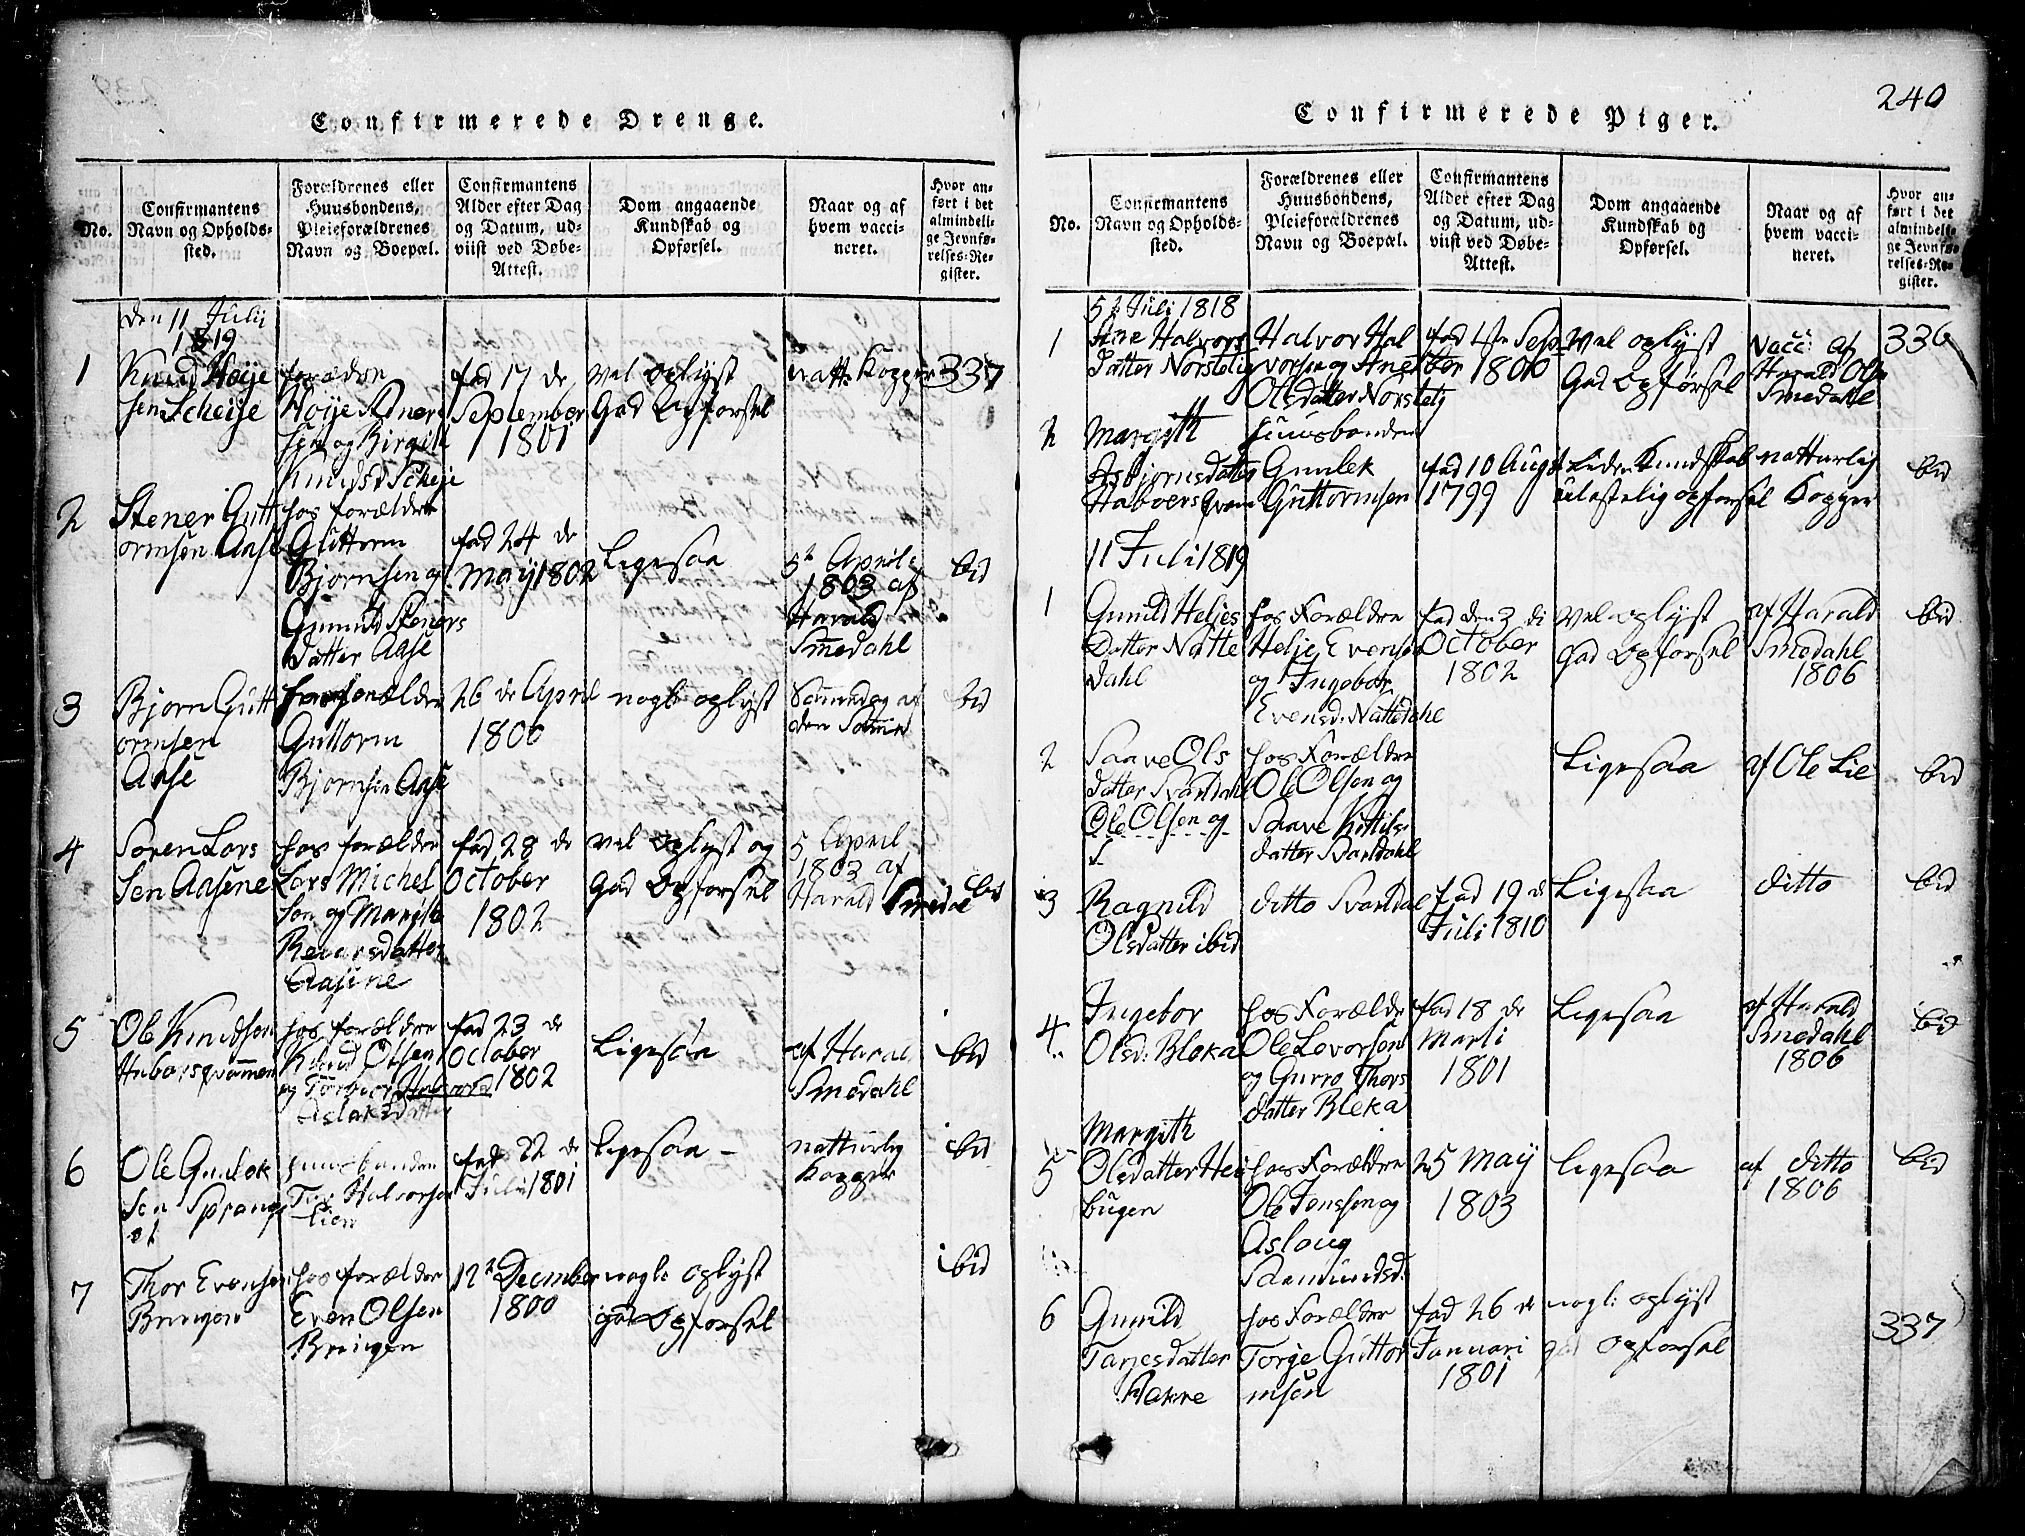 240
Confirmerede Drenge.
No.
Confirmantens
Navn og Opholds-
sted.
Forældrenes eller
Huusbondens,
Pleieforældrenes
Navn og Boepæl.
Confirmantens
Alder efter Dag
og Datum, ud-
viist ved Døbe-
Attest.
Dom angaaende
Kundskab og
Opførsel.
Naar og af
hvem vacci-
neret.
Hvor an-
ført i det
almindeli-
ge Jevnfø-
relses-Re-
gister.
den 11 Julii
1819
1
Knud Høije
sen Scheije
forældre
Høije Adner
sen og Birgit
Knudsd Scheije
fød 17 de
September
1801
vel oplyst
God Opforsel
natt: Kopper
337
2
Stener Gutt
ormsen Aase
hos forældre
Guttorm
Bjornsen og
Gunuld Steners
datter Aase
fød 24 de
May 1802
Ligesaa
5te April
1803 af
Harald
Smedahl
ibid
3
Bjorn Gutt
ormsen
Aase
forældre
Guttorm
Bjornsen Aase
26 de April
1806
nogle oplyst
den Samme
ibid
4
Soren Lars
sen Aasene
hos forældre
Lars Michel
sen og Margith
Reiarsdatter
Aasene
fød 28 de
October
1802
vel oplyst og
God Opforsel
5 April
1803 af
Harald Smedal
ibid
5
Ole Knudsen
hos forældre
Knud Olsen
og Torbor
Aslaksdatter
fød 23 de
October
1802
Ligesaa
af Haral
Smedahl
ibid
6
Ole Gunlek
sen
huusbonden
Torj Halvorsen
Lien
fød 22 de
Juli 1801
Ligesaa –
natturlig
Kopper
ibid
7
Thor Evensen
Bringen
hos forældre
Even Olsen
Bringen
12te December
1800
nogle oplyst
god Opforsel
ibid
Confirmerede Piger.
No.
Confirmantens
Navn og Opholds-
sted.
Forældrenes eller
Huusbondens,
Pleieforældrenes
Navn og Boepæl.
Confirmantens
Alder efter Dag
og Datum, ud-
viist ved Døbe-
Attest.
Dom angaaende
Kundskab og
Opførsel.
Naar og af
hvem vacci-
neret.
Hvor an-
ført i det
almindeli-
ge Jevnfø-
relses-Re-
gister.
5te Juli 1818
1
Ane Halvors
datter Norstelig
Halvor Hal
vorsen og Ane
Olsdatter Norstelig
fød 4de Sep
tber 1800
vel oplyst
God Opførsel
Vacc: af
Harald Olsen
Smedahl
336
2
Margith
Asbjornsdatter
huusbonden
Gunlek
Guttormsen
fød 10 August
1799
Liden Kundskab
ulastelig opforsel
natturlig
Kopper
ibid
11 Juli 1819
1
Gunild Heljes
Datter Natte
dahl
hos Forældre
Helje Evensen
og Ingebor
Evensd: Nattedahl
fød den 3 di
October
1802
vel oplyst
God Opforsel
af Harald
Smedahl
1806
ibid
2
Saave Ols
datter Svardahl
Ole Olsen og
hos Forældre
Ole Olsen og
Saave Kittils-
datter Svardahl
Ligesaa
af Ole Lie
ibid
3
Ragnild
Olsdatter ibid
ditto Svardal
fød 19 de
Juli 1810
Ligesaa
ditto
ibid
4
Ingebor
Olsd: Bleka
hos Forældre
Ole Levorsen
og Gurro Thors
datter Bleka
fød 18 de
Marti
1801
Ligesaa
af Harald
Smedahl
1806
ibid
5
Margith
Olsdatter Hei
bugen
hos Forældre
Ole Jonssen og
Asloug
Sæmundsd:
25 May
1803
Ligesaa
af ditto
1806
ibid
6
Gunild
Tarjesdatter
hos Forældre
Torje Guttor
msen
fød 26 de
Januari
1801
nogl: oplyst
god opforsel
337